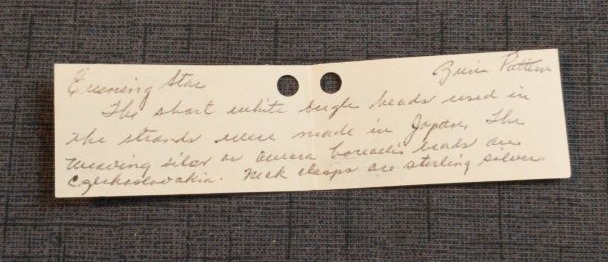 Evening Star Zuni Pattern
The short white bugle beads used in
the strands were made in Japan. The
weaving silex or aurora borealis beads are
Czechoslovakia. Neck clasps are sterling silver.